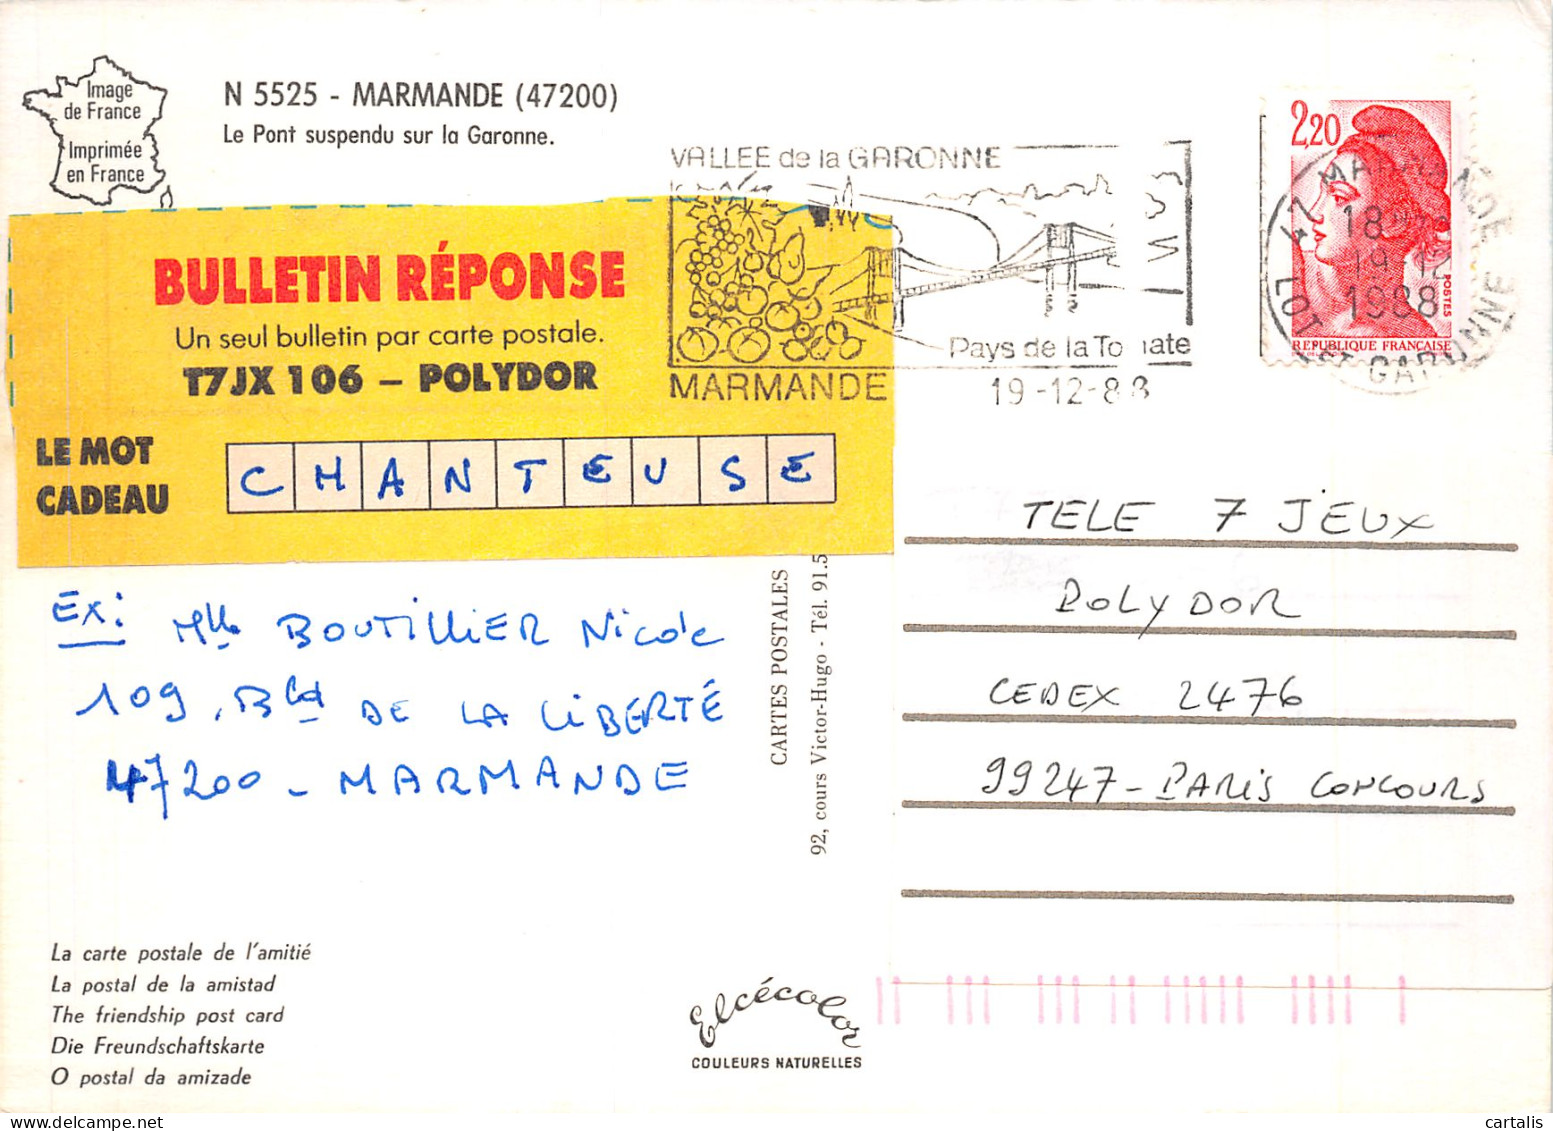 Image
de France
Imprimée
en France
N 5525 - MARMANDE (47200)
Le Pont suspendu sur la Garonne.
VALLEE de la GARONNE
Pays de la To ate
MARMANDE
19-12-88
2,20
POSTES
REPUBLIQUE FRANÇAISE
47 MARMANDE
18
19 12
1988
LOT ET GARONNE
BULLETIN RÉPONSE
Un seul bulletin par carte postale.
T7JX 106 – POLYDOR
LE MOT
CADEAU
CHANTEUSE
Ex: Mlle BOUTILLIER Nicole
109, Bld DE LA LIBERTÉ
47200 - MARMANDE
CARTES POSTALES
92, cours Victor-Hugo - Tél. 91.5
TELE 7 JEUX
POLYDOR
CEDEX 2476
99247 - PARIS CONCOURS
La carte postale de l'amitié
La postal de la amistad
The friendship post card
Die Freundschaftskarte
O postal da amizade
Elcécolor
COULEURS NATURELLES
cartalis